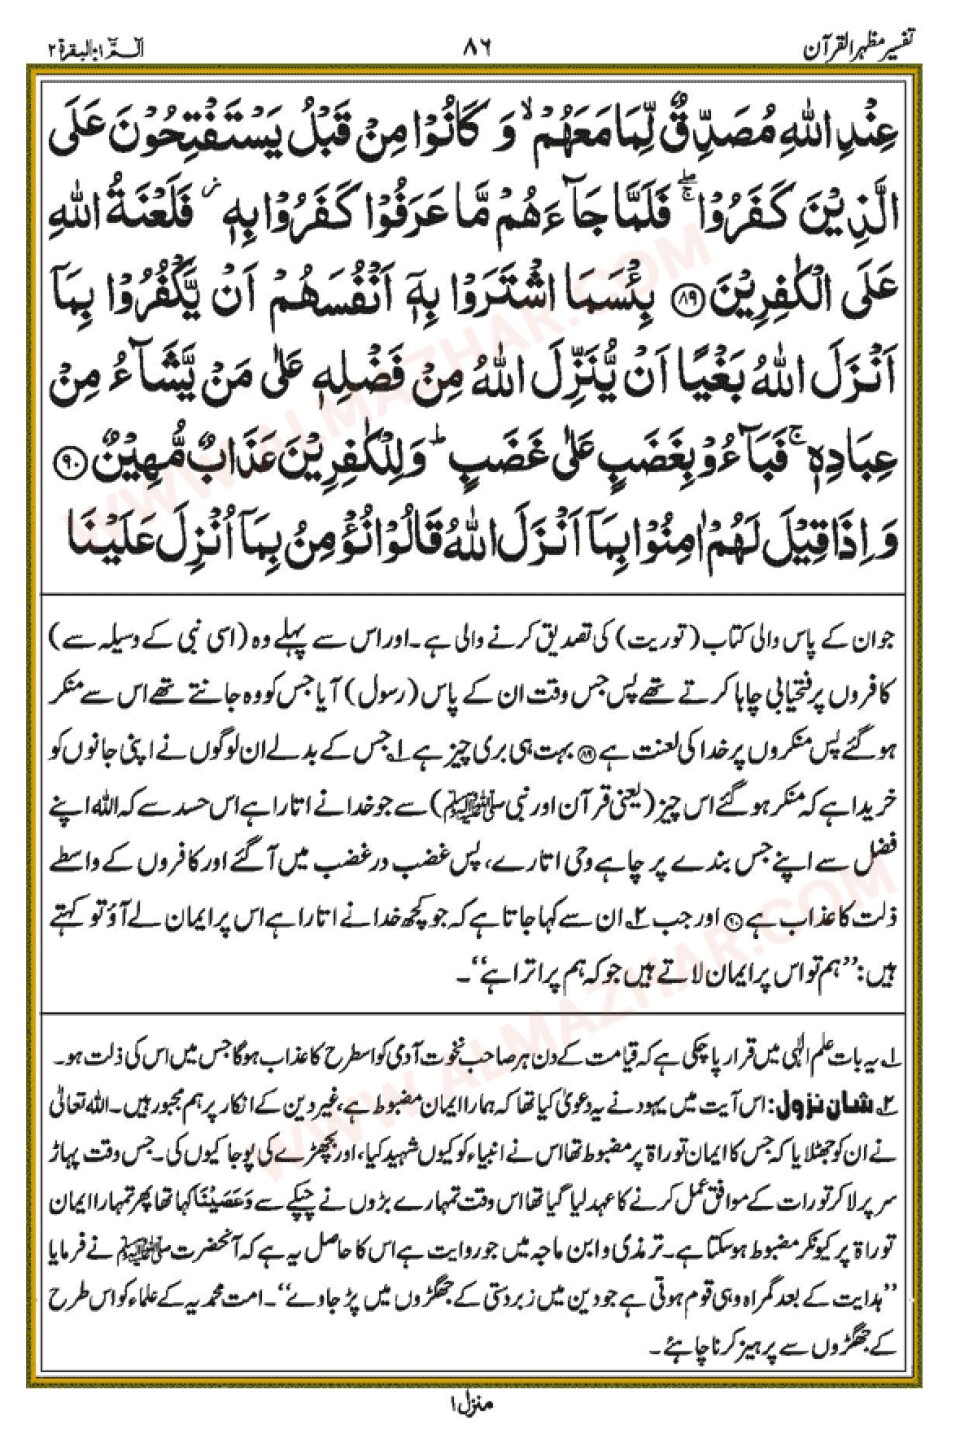 تفسیر مظہر القرآن ۸۶ الٓـمّٓ ۱: البقرۃ ۲
عِنْدِ اللّٰهِ مُصَدِّقٌ لِّمَا مَعَهُمْ ۙ وَ كَانُوْا مِنْ قَبْلُ يَسْتَفْتِحُوْنَ عَلَى
الَّذِيْنَ كَفَرُوْا ۚۖ فَلَمَّا جَآءَهُمْ مَّا عَرَفُوْا كَفَرُوْا بِهٖ ؗ فَلَعْنَةُ اللّٰهِ
عَلَى الْكٰفِرِيْنَ ﴿۸۹﴾ بِئْسَمَا اشْتَرَوْا بِهٖۤ اَنْفُسَهُمْ اَنْ يَّكْفُرُوْا بِمَاۤ
اَنْزَلَ اللّٰهُ بَغْيًا اَنْ يُّنَزِّلَ اللّٰهُ مِنْ فَضْلِهٖ عَلٰى مَنْ يَّشَآءُ مِنْ
عِبَادِهٖ ۚ فَبَآءُوْ بِغَضَبٍ عَلٰى غَضَبٍ ؕ وَ لِلْكٰفِرِيْنَ عَذَابٌ مُّهِيْنٌ ﴿۹۰﴾
وَ اِذَا قِيْلَ لَهُمْ اٰمِنُوْا بِمَاۤ اَنْزَلَ اللّٰهُ قَالُوْا نُؤْمِنُ بِمَاۤ اُنْزِلَ عَلَيْنَا
جو ان کے پاس والی کتاب (توریت) کی تصدیق کرنے والی ہے۔ اور اس سے پہلے وہ (اسی نبی کے وسیلہ سے)
کافروں پر فتحیابی چاہا کرتے تھے پس جس وقت ان کے پاس (رسول) آیا جس کو وہ جانتے تھے اس سے منکر
ہو گئے پس منکروں پر خدا کی لعنت ہے ﴿۸۹﴾ بہت ہی بری چیز ہے ۱؎ جس کے بدلے ان لوگوں نے اپنی جانوں کو
خریدا ہے کہ منکر ہو گئے اس چیز (یعنی قرآن اور نبی ﷺ) سے جو خدا نے اتارا ہے اس حسد سے کہ اللہ اپنے
فضل سے اپنے جس بندے پر چاہے وحی اتارے، پس غضب در غضب میں آ گئے اور کافروں کے واسطے
ذلت کا عذاب ہے ﴿۹۰﴾ اور جب ۲؎ ان سے کہا جاتا ہے کہ جو کچھ خدا نے اتارا ہے اس پر ایمان لے آؤ تو کہتے
ہیں: ’’ہم تو اس پر ایمان لاتے ہیں جو کہ ہم پر اترا ہے‘‘۔
۱؎ یہ بات علم الٰہی میں قرار پا چکی ہے کہ قیامت کے دن ہر صاحب نخوت آدمی کو اسطرح کا عذاب ہوگا جس میں اس کی ذلت ہو۔
۲؎ شان نزول: اس آیت میں یہود نے یہ دعویٰ کیا تھا کہ ہمارا ایمان مضبوط ہے، غیر دین کے انکار پر ہم مجبور ہیں۔ اللہ تعالیٰ
نے ان کو جھٹلایا کہ جس کا ایمان توراۃ پر مضبوط تھا اس نے انبیاء کو کیوں شہید کیا، اور بچھڑے کی پوجا کیوں کی۔ جس وقت پہاڑ
سر پر لا کر تورات کے موافق عمل کرنے کا عہد لیا گیا تھا اس وقت تمہارے بڑوں نے چپکے سے وَعَصَيْنَا کہا تھا پھر تمہارا ایمان
توراۃ پر کیونکر مضبوط ہو سکتا ہے۔ ترمذی و ابن ماجہ میں جو روایت ہے اس کا حاصل یہ ہے کہ آنحضرت ﷺ نے فرمایا
’’ہدایت کے بعد گمراہ وہی قوم ہوتی ہے جو دین میں زبردستی کے جھگڑوں میں پڑ جاوے‘‘۔ امت محمدیہ کے علماء کو اس طرح
کے جھگڑوں سے پرہیز کرنا چاہئے۔
منزل ۱
WWW.ALMAZHAR.COM
WWW.ALMAZHAR.COM